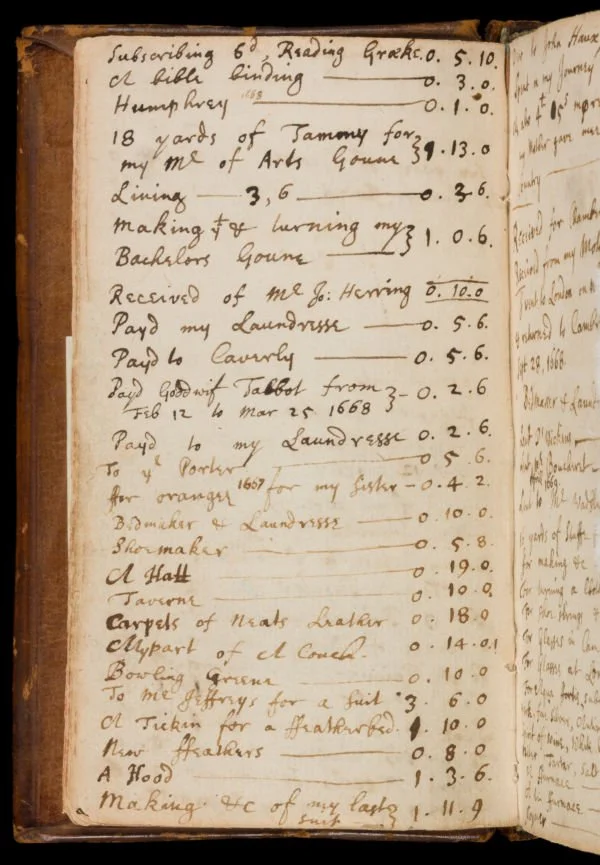 Subscribing 6d, Reading Græke. 0. 5. 10.
A bible binding 0. 3. 0.
Humphrey 0. 1. 0.
18 yards of Tammy for
my Mr of Arts Goune } 1. 13. 0
Living 3, 6 0. 3 6.
Making & turning my
Bachelors Goune } 1. 0. 6.
Received of Mr Jo: Herring 0. 10. 0
Payd my Laundresse 0. 5. 6.
Payd to Caverly 0. 5. 6.
Payd Goodwif Tabbot from } 0. 2. 6
Feb 12 to Mar 25 1668
Payd to my Laundresse 0. 2. 6.
To ye Porter 0 5 6.
ffor oranges 1667 for my sister - 0. 4. 2.
Bedmaker & Laundresse 0. 10. 0
Shoemaker 0. 5. 8.
A Hatt 0. 19. 0
Taverne 0. 10. 0
Carpets of Neats Leather 0. 18. 0
My part of A Couch. 0. 14. 0
Bowling Greene 0. 10. 0
To Mr Jeffreys for a suit 3. 6. 0
A Tickin for a ffeatherbed. 1. 10. 0
New ffeathers 0. 8. 0
A Hood 1. 3. 6.
Making &c of my last
suit } 1. 11. 9
to John Haux
spent in my Journey
my Mother gave me
Country
Received for Chamber
Received from my Moth
I went to London on
returned to Cambr
1668
Bedmaker & Laund
yards of Stuffe
for making &c
For turning a
For shoe strings &
For Glasses in Cam
For Glasses at Lon